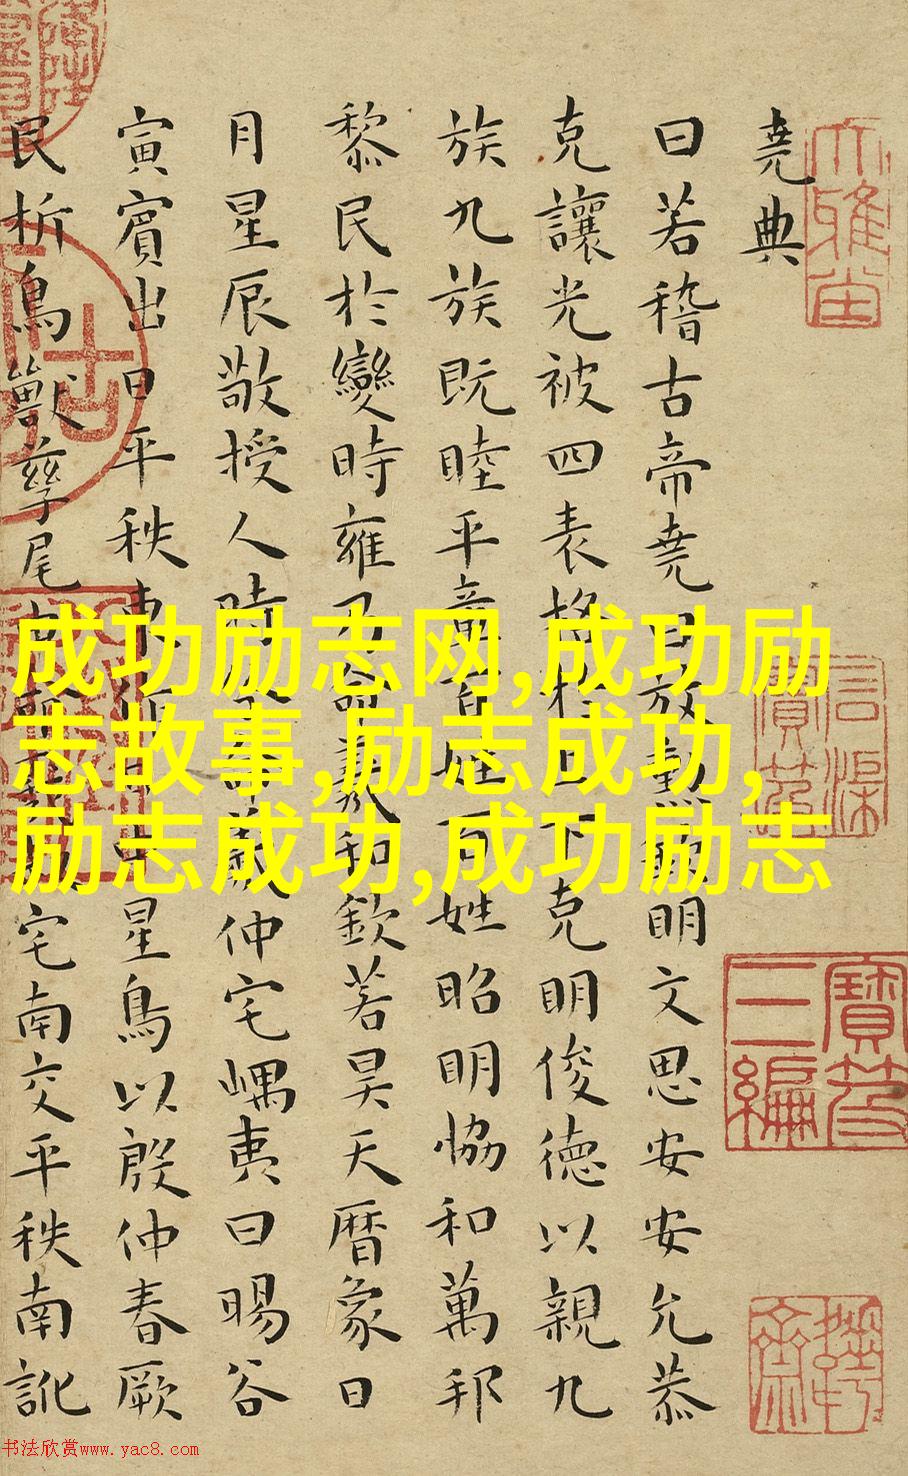 堯典
曰若稽古帝堯曰放勲欽明文思安安允恭
克讓光被四表格於上下克明俊德以親九
族九族既睦平章百姓百姓昭明恊和萬邦
黎民於變時雍乃命羲和欽若昊天曆象日
月星辰敬授人時分命羲仲宅嵎夷曰暘谷
寅賓出日平秩東作日中星鳥以殷仲春厥
民析鳥獸孳尾申命羲叔宅南交平秩南訛
寶笈
三編
成功励志网,成功励
志故事,励志成功,
励志成功,成功励志
书法欣赏www.yac8.com